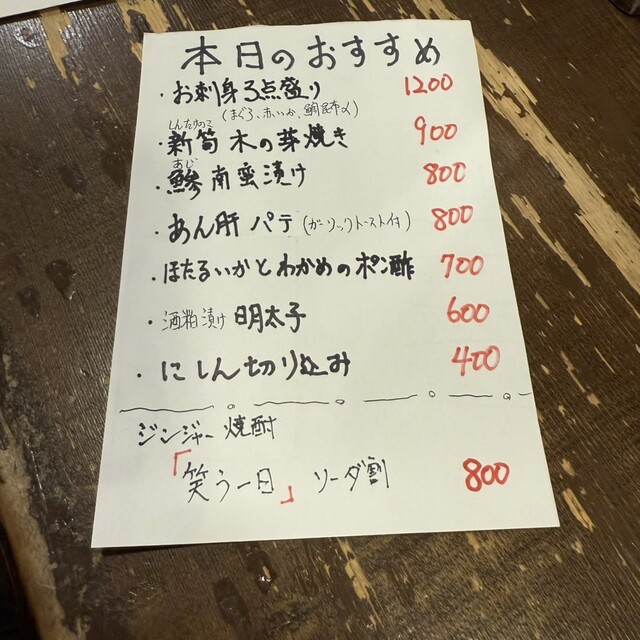 本日のおすすめ
・お刺身3点盛り 1200
(まぐろ、赤いか、鯛昆布〆)
しんたけのこ
・新筍 木の芽焼き 900
あじ
・鯵南蛮漬け 800
・あん肝パテ(ガーリックトースト付) 800
・ほたるいかとわかめのポン酢 700
・酒粕漬け 明太子 600
・にしん切り込み 400
ジンジャー焼酎
「笑う一日」 ソーダ割 800